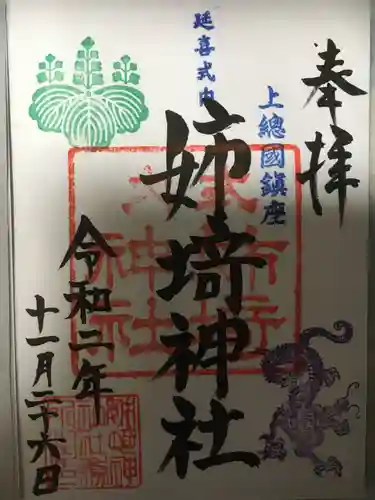 奉拝
上總國鎮座
延喜式内
姉埼神社
令和二年
十一月二十六日